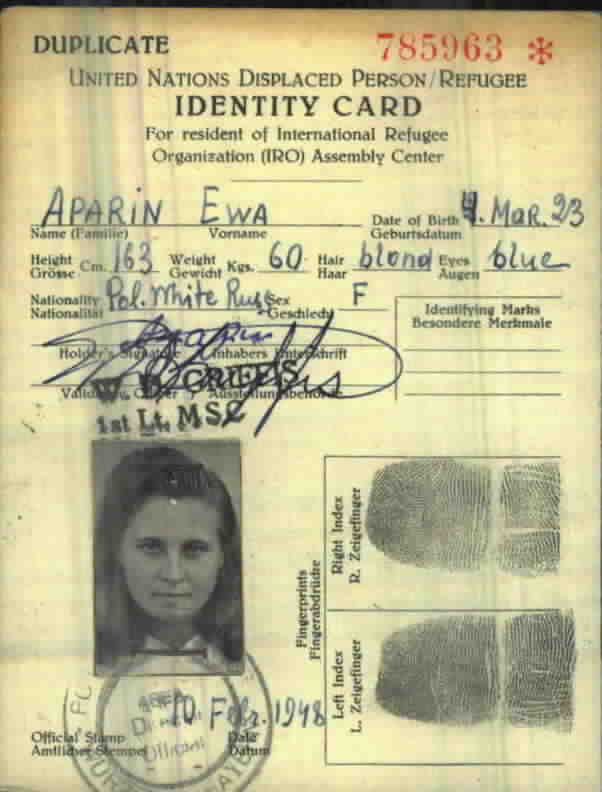 DUPLICATE 785963 *
UNITED NATIONS DISPLACED PERSON/REFUGEE
IDENTITY CARD
For resident of International Refugee
Organization (IRO) Assembly Center
APARIN EWA
Name (Familie) Vorname
Date of Birth 4. MaR. 23
Geburtsdatum
Height Cm. 163 Weight Kgs. 60 Hair blond Eyes blue
Grösse Gewicht Haar Augen
Nationality Pol. White Russ Sex F
Nationalität Geschlecht
Identifying Marks
Besondere Merkmale
Holder's Signature Inhabers Unterschrift
W GRIFFIS
Ausstellungsbehörde
1st Lt. MSC
Right Index
R. Zeigefinger
Fingerprints
Fingerabdrücke
Left Index
L. Zeigefinger
10 Febr. 1948
Official Stamp Date
Amtlicher Stempel Datum
AREA
Official